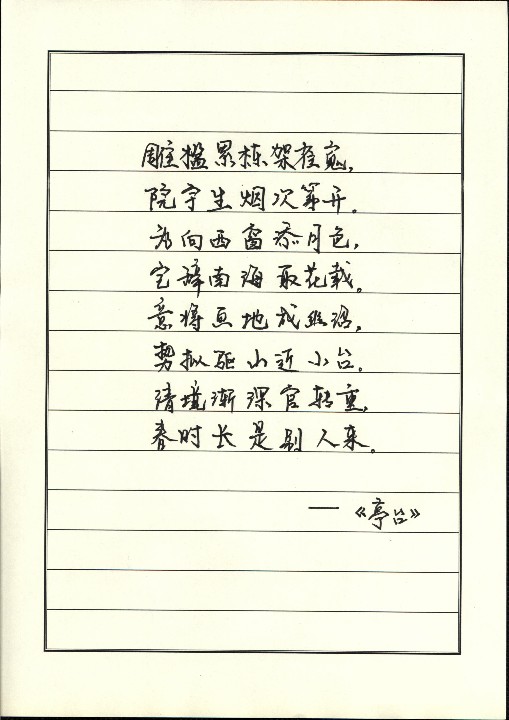 雕楹累栋架崔嵬,
院宇生烟次第开。
为向西窗添月色,
宁辞南海取花栽。
意将画地成幽沼,
势拟驱山近小台。
清境渐深官转重,
春时长是别人来。
——《亭台》